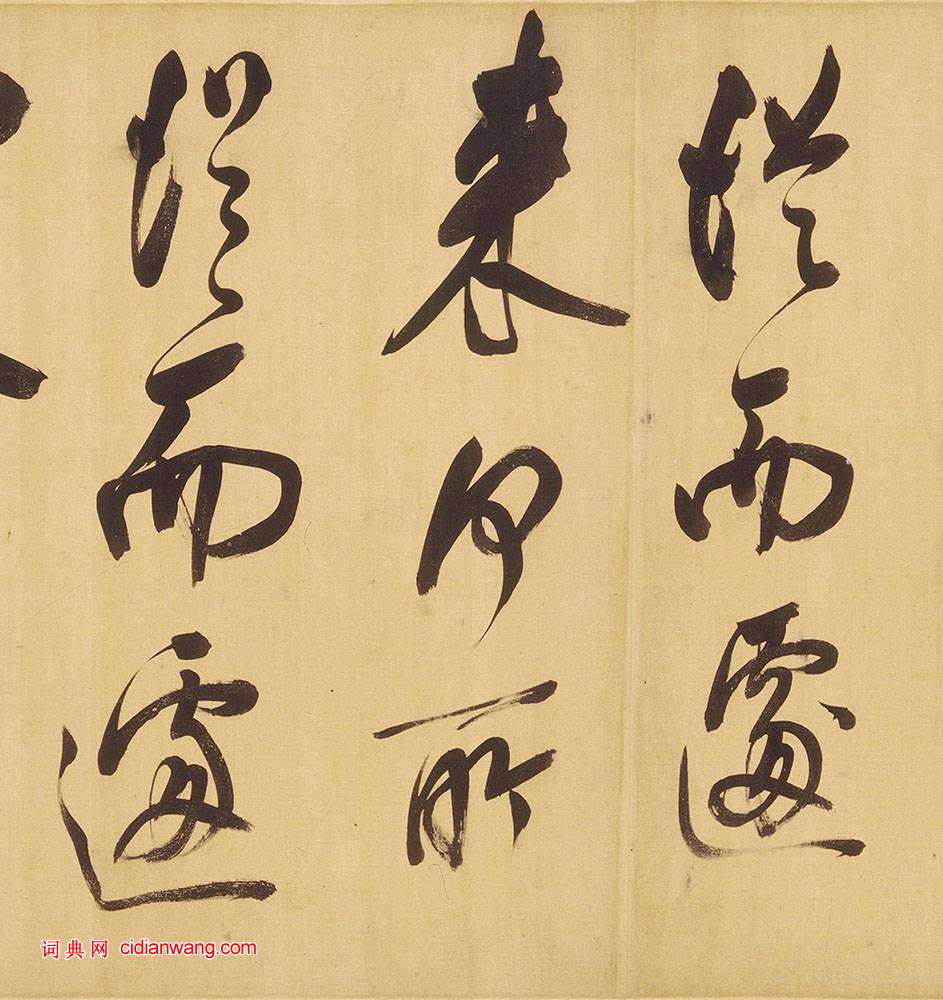 從而遽
来何所
從而遽
词典网 cidianwang.com